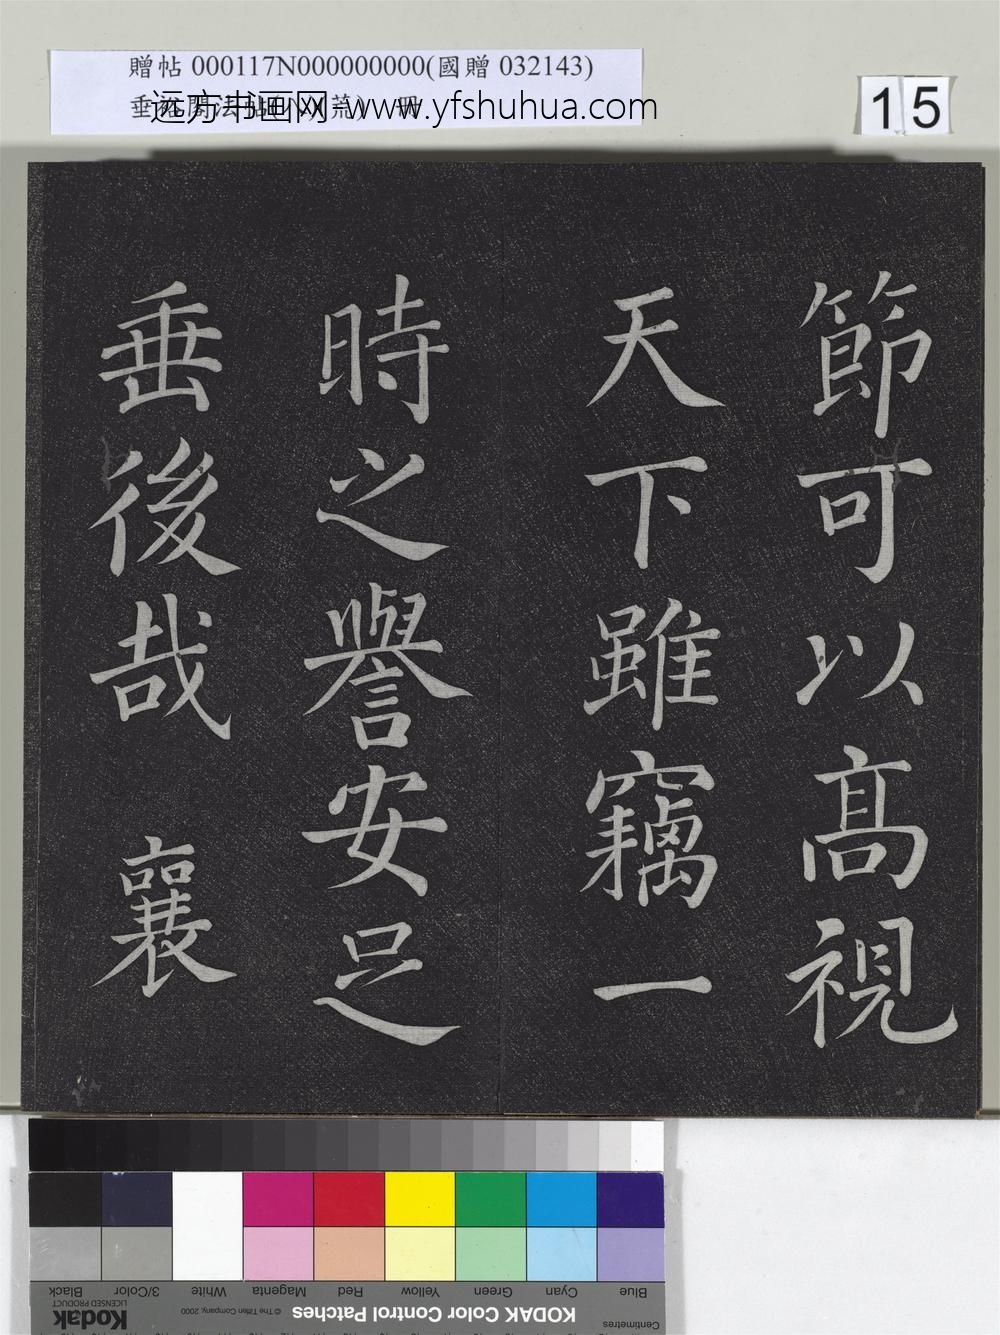 贈帖 000117N000000000(國贈 032143)
远方书画网-www.yfshuhua.com
15
節可以高視
天下雖竊一
時之譽安足
垂後哉 襄
Blue Cyan Green Yellow Red Magenta White 3/Color Black
Centimetres KODAK Color Control Patches © The Tiffen Company, 2000 Kodak LICENSED PRODUCT